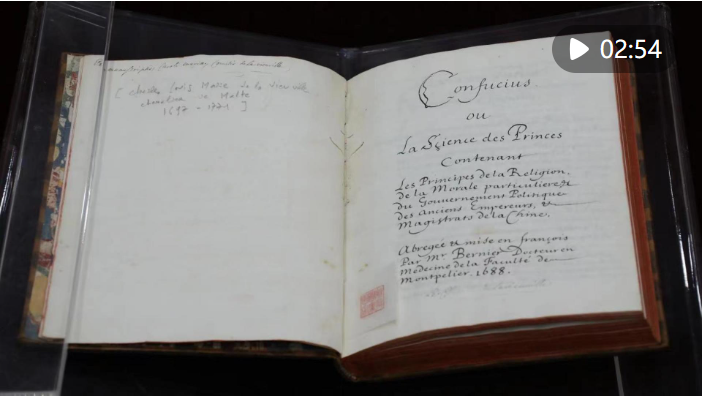 [
Charles
Malte
1697 - 1721 ]
Confucius.
ou
La Science des Princes
Contenant
Les Principes de la Religion,
de la Morale particuliere, &
du Gouvernement Politique
des Anciens Empereurs, &
Magistrats de la Chine.
Abregée & mise en françois
Par Mr. Bernier Docteur en
Medecine de la Faculté de
Montpelier. 1688.
02:54